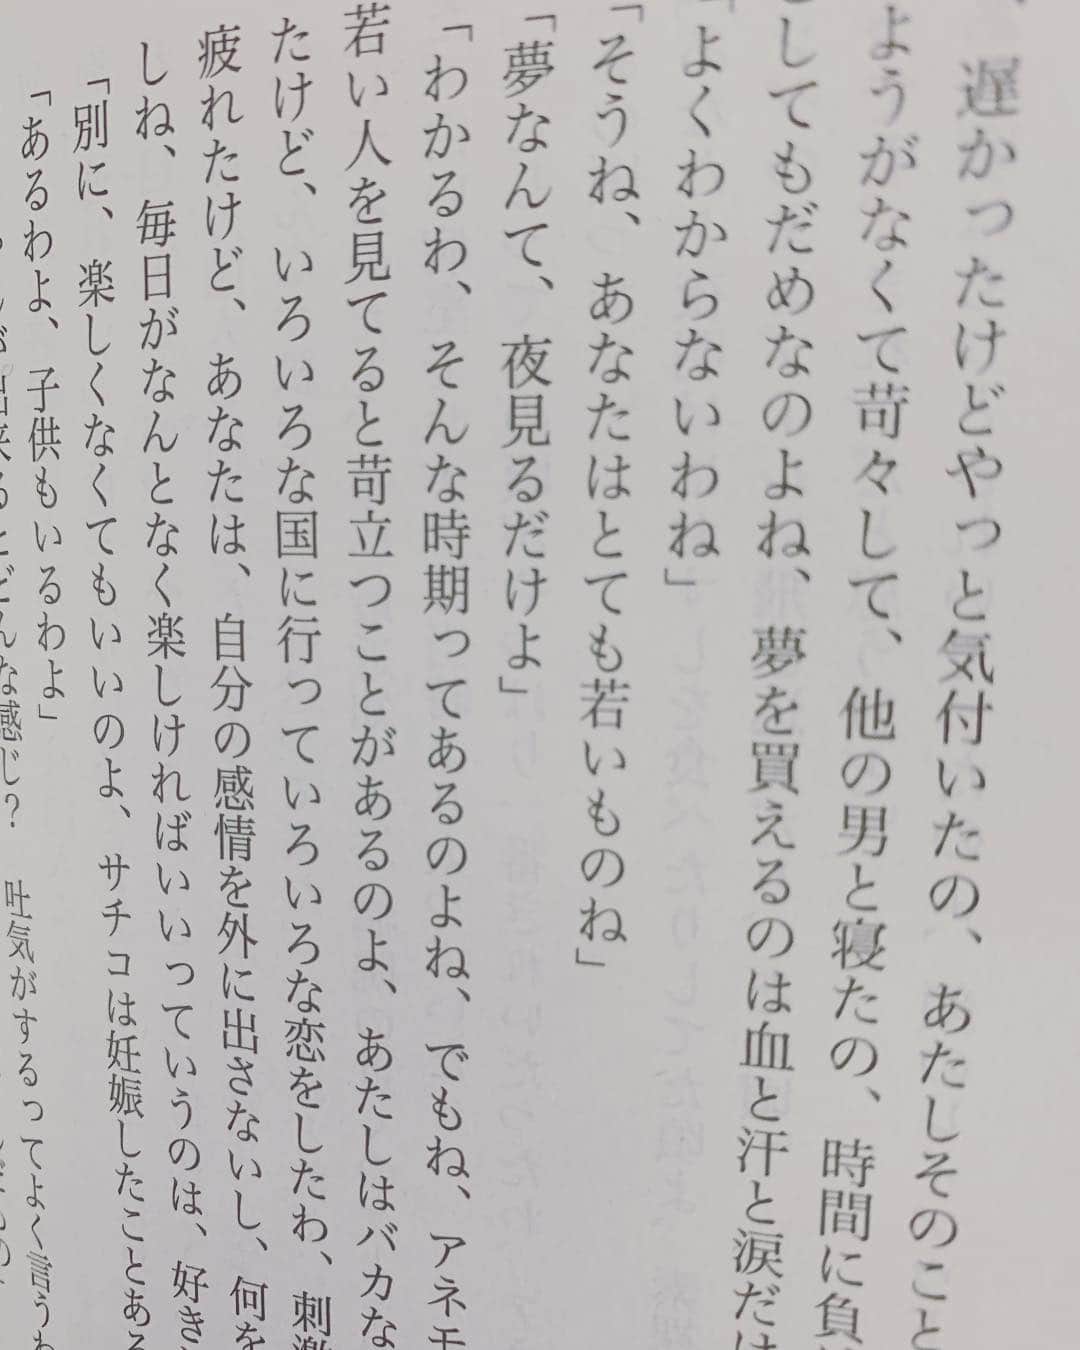 遅かったけどやっと気付いたの、あたしそのこと
ようがなくて苛々して、他の男と寝たの、時間に負
してもだめなのよね、夢を買えるのは血と汗と涙だけ
「よくわからないわね」
「そうね、あなたはとても若いものね」
「夢なんて、夜見るだけよ」
「わかるわ、そんな時期ってあるのよね、でもね、アネモ
若い人を見てると苛立つことがあるのよ、あたしはバカな
たけど、いろいろな国に行っていろいろな恋をしたわ、刺激
疲れたけど、あなたは、自分の感情を外に出さないし、何を
しね、毎日がなんとなく楽しければいいっていうのは、好き
「別に、楽しくなくてもいいのよ、サチコは妊娠したことある
「あるわよ、子供もいるわよ」
出来るとどんな感じ？　吐気がするってよく言うわ